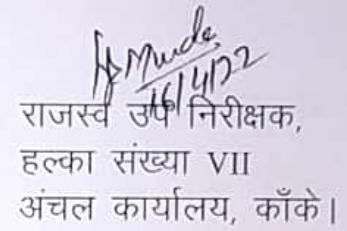 16/4/22
राजस्व उप निरीक्षक,
हल्का संख्या VII
अंचल कार्यालय, काँके।